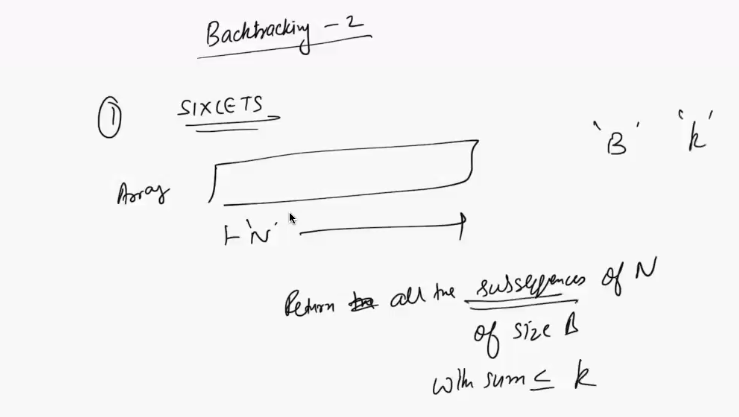 Backtracking - 2
① SIXLETS
'B' 'k'
Array
'N'
Return all the subsequences of N
of size B
with sum ≤ k